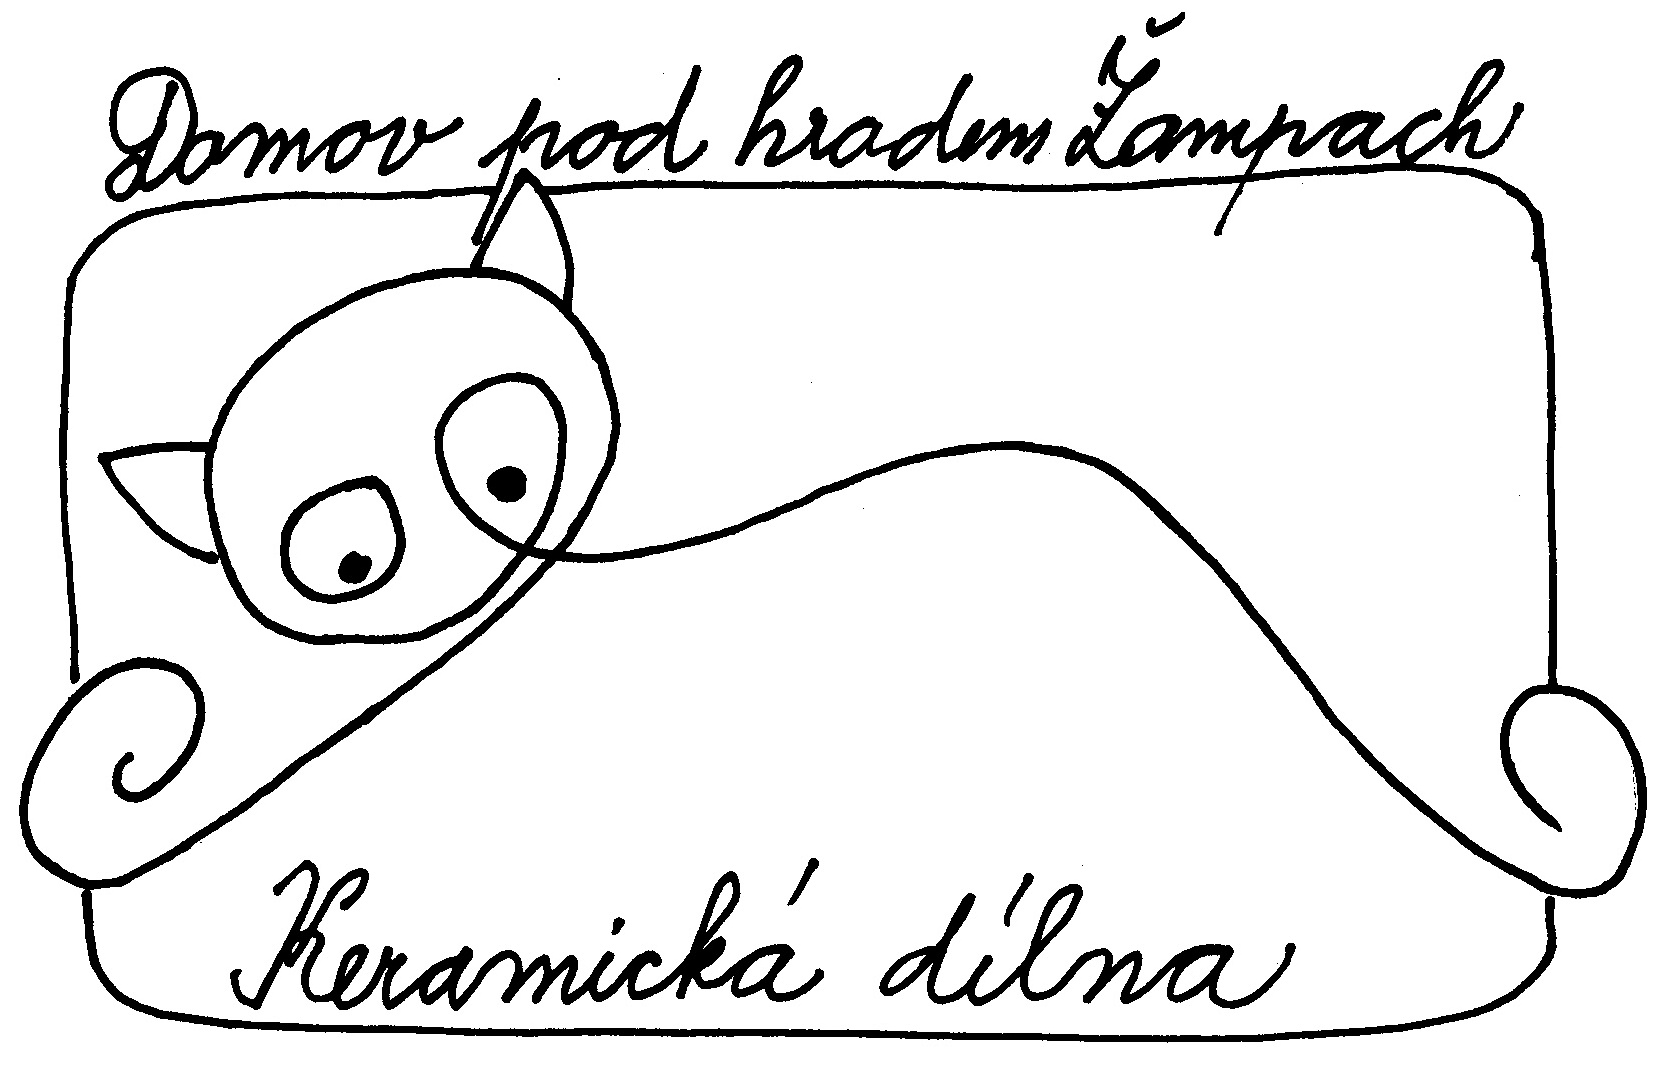 Domov pod hradem Žampach
Keramická dílna